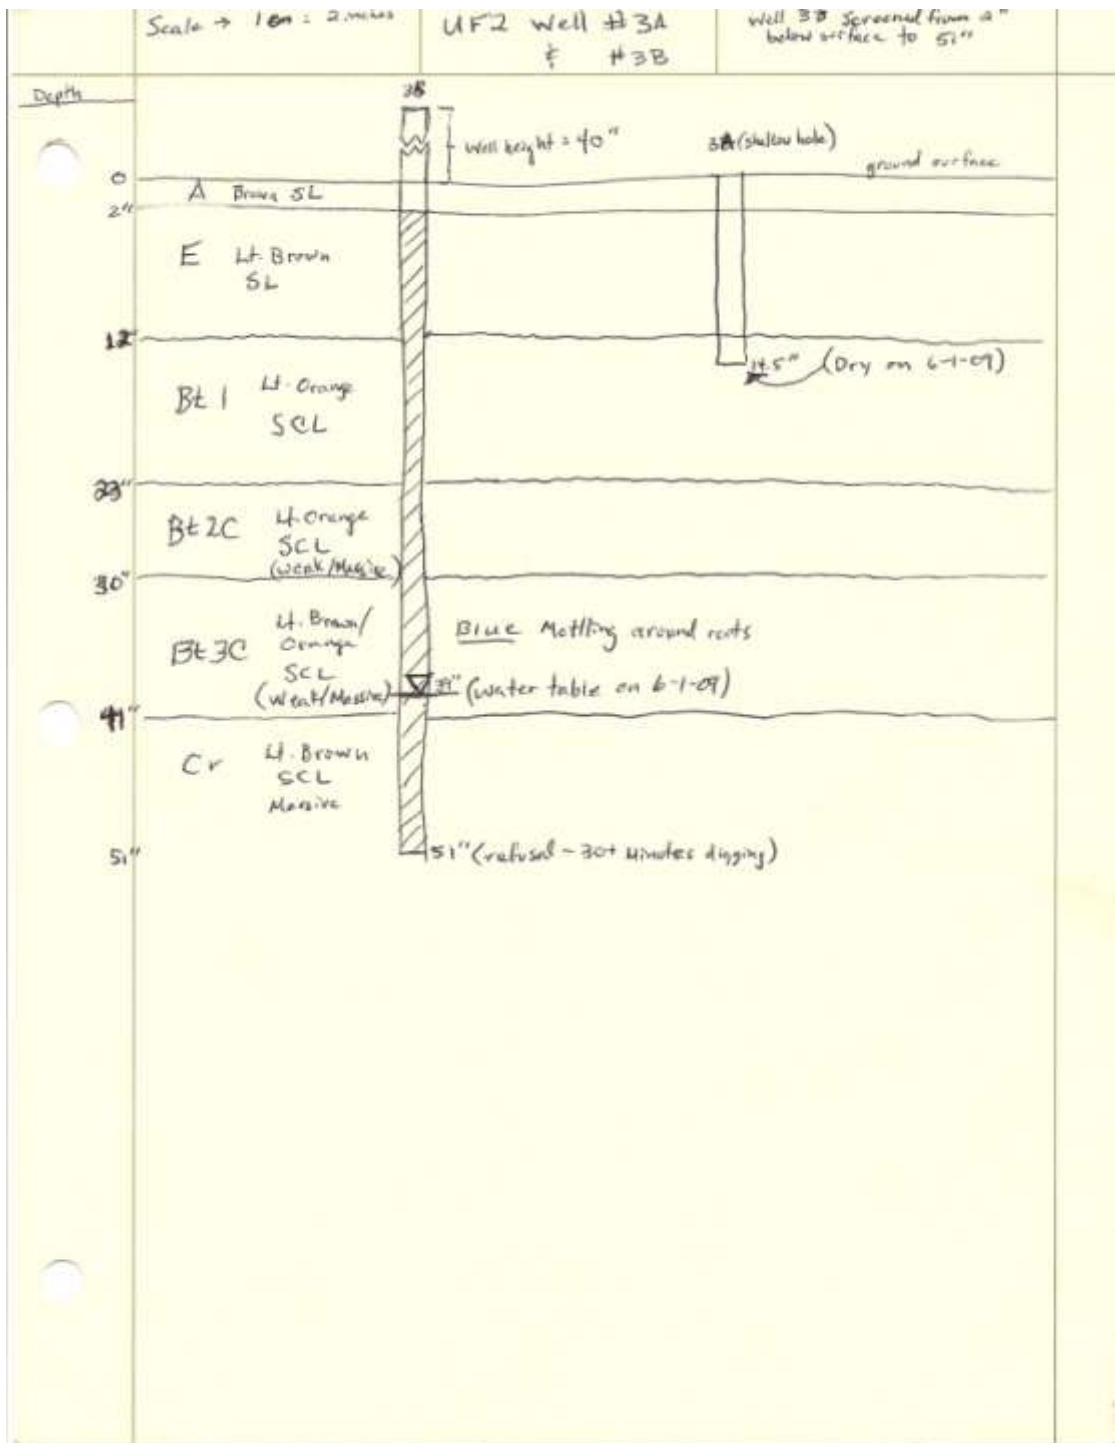 Scale → 1 cm = 2 inches
UF2 Well #3A
& #3B
Well 3B Screened from 2"
below surface to 51"
Depth
3B
Well height = 40"
3A (shallow hole)
ground surface
0
A Brown SL
2"
E Lt. Brown
SL
12"
14.5" (Dry on 6-1-09)
Bt 1 Lt. Orange
SCL
Bt2C Lt. Orange
SCL
(weak/Massive)
30"
Bt3C Lt. Brown/
Orange
SCL
(Weak/Massive)
Blue Mottling around roots
39" (water table on 6-1-09)
41"
Cr Lt. Brown
SCL
Massive
51"
51" (refusal - 30+ Minutes digging)